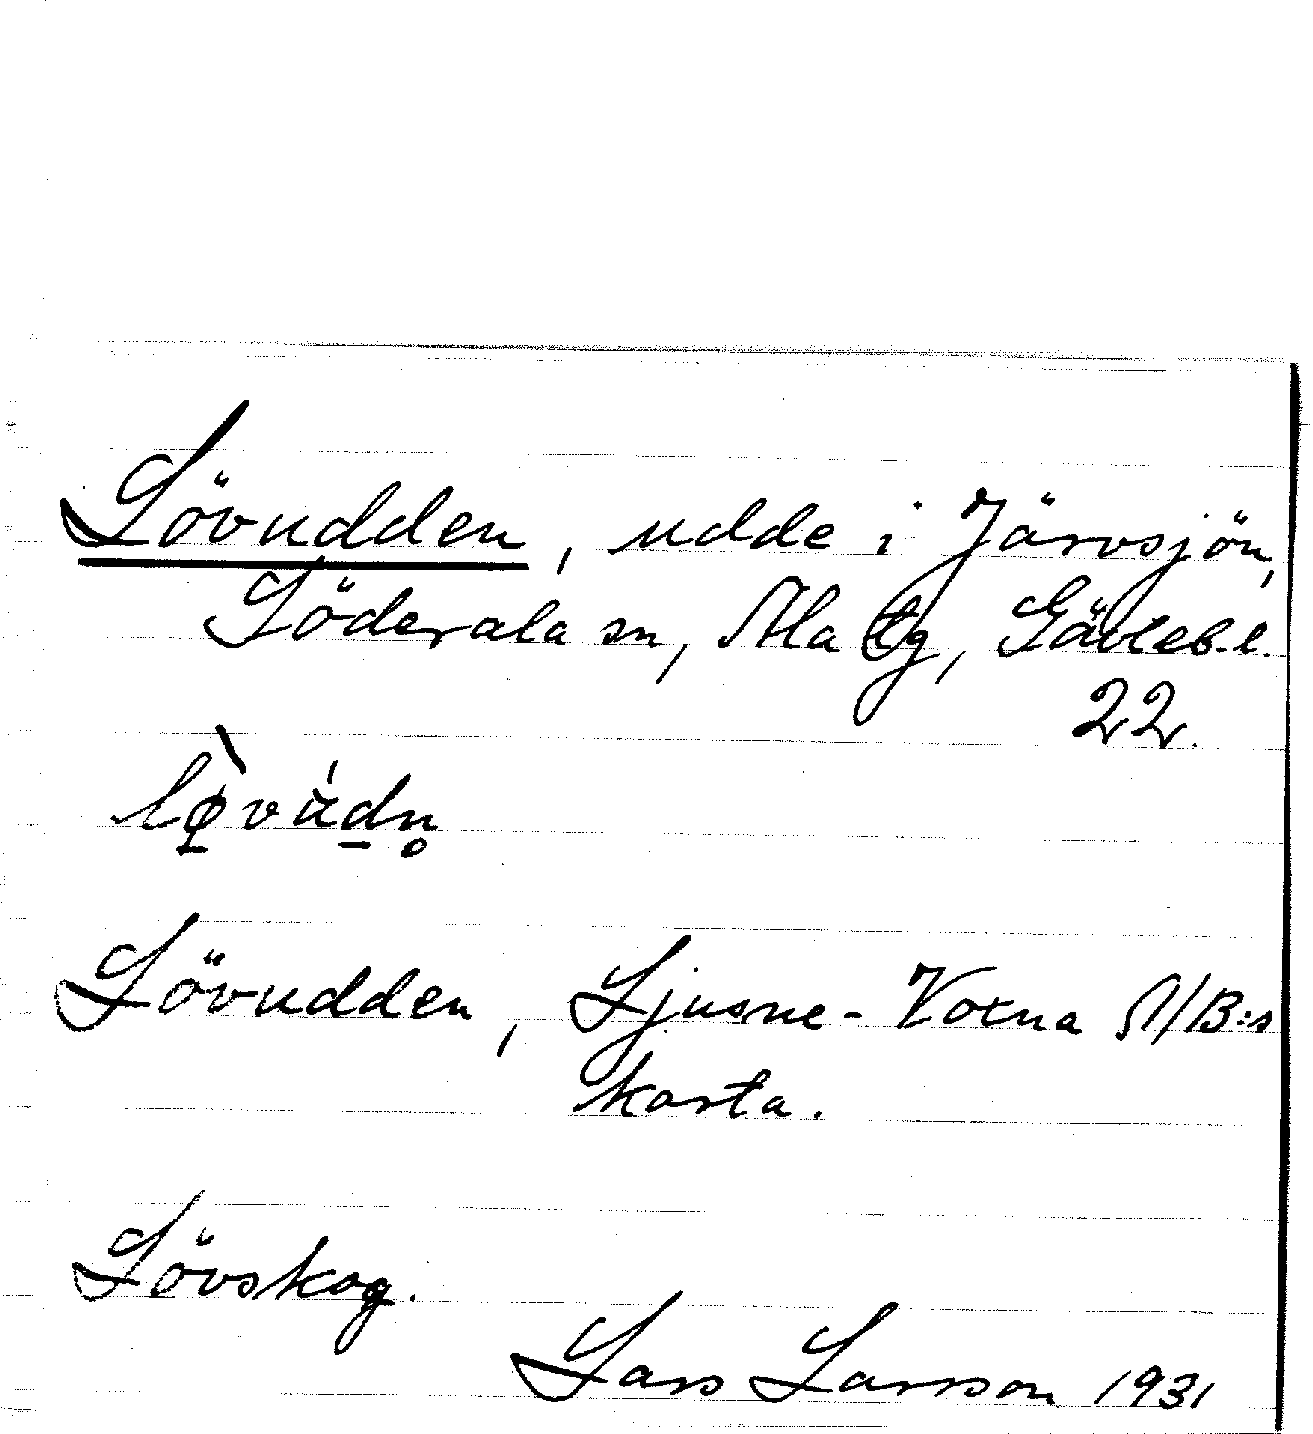 Lövudden, udde i Järvsjön,
Söderala sn, Ala tg, Gävleb. l.
22.
lø̠̀vúd̠n̥
Lövudden, Ljusne-Voxna A/B:s
karta.
Lövskog.
Lars Larsson 1931